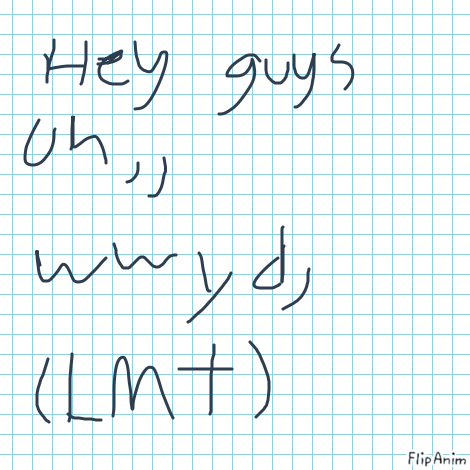 Hey guys
Uh,,,
wwyd,
(LMT)
FlipAnim